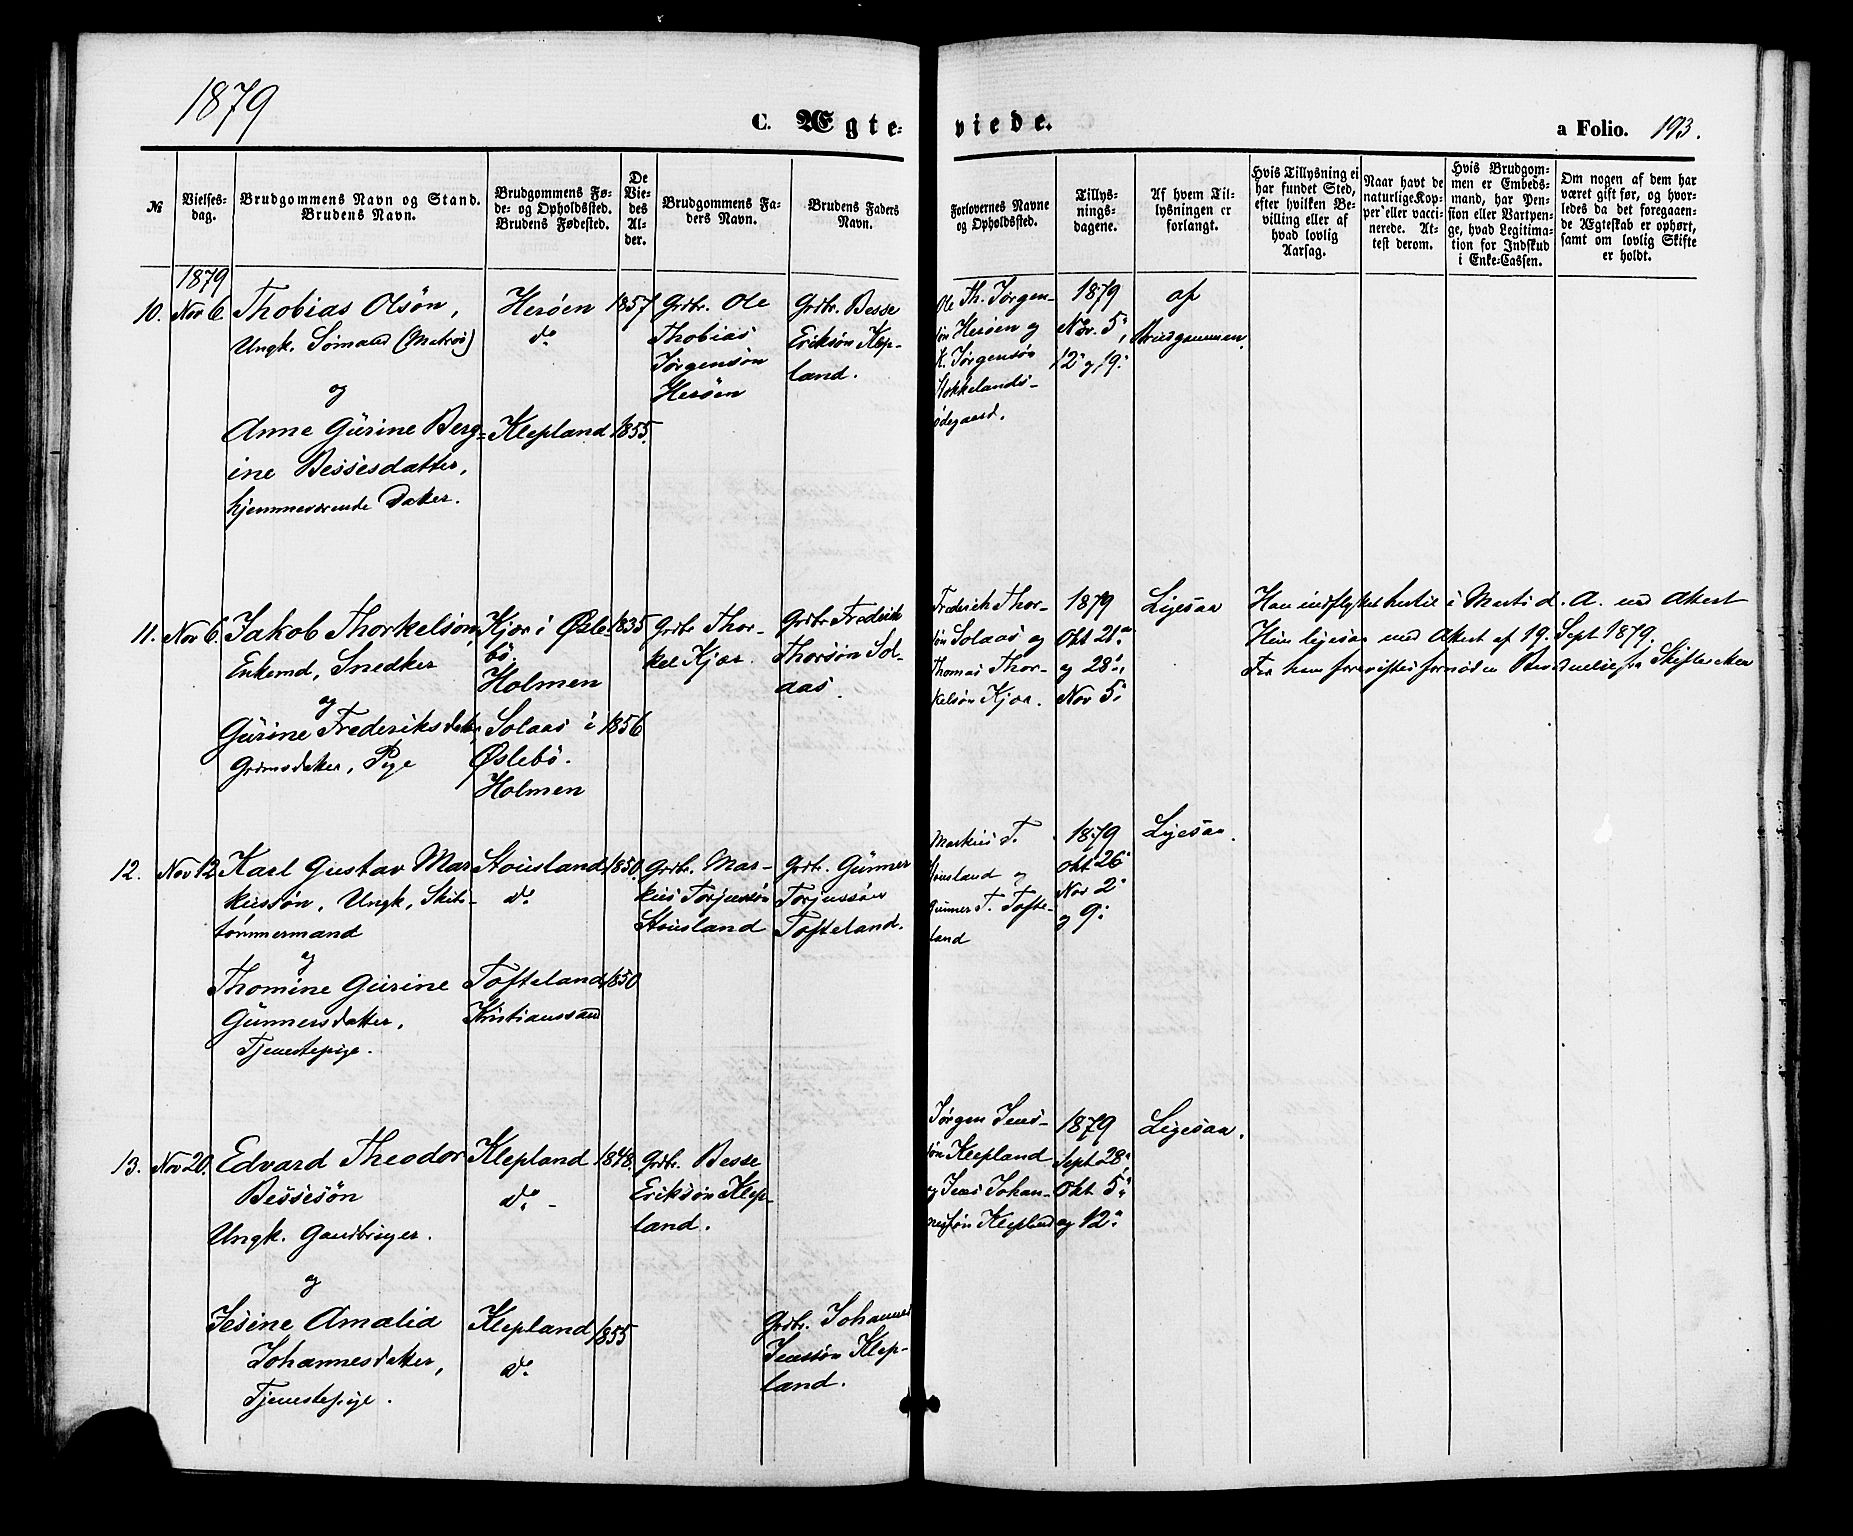 1879
C. Ægte-
viede.
a Folio. 193.
№
Vielses-
dag.
Brudgommens Navn og Stand.
Brudens Navn.
Brudgommens Fø-
de- og Opholdssted.
Brudens Fødested.
De
Vie-
des
Al-
der.
Brudgommens Fa-
ders Navn.
Brudens Faders
Navn.
Forlovernes Navne
og Opholdssted.
Tillys-
nings-
dagene.
Af hvem Til-
lysningen er
forlangt.
Hvis Tillysning ei
har fundet Sted,
efter hvilken Be-
villing eller af
hvad lovlig
Aarsag.
Naar havt de
naturlige Kop-
per eller vacci-
nerede. At-
test derom.
Hvis Brudgom-
men er Embeds-
mand, har Pen-
sion eller Vartpen-
ge, hvad Legitima-
tion for Indskud
i Enke-Cassen.
Om nogen af dem har
været gift før, og hvor-
ledes da det foregaaen-
de Ægteskab er ophørt,
samt om lovlig Skifte
er holdt.
1879
10.
Nov 6
Thobias Olsön,
Ungk. Sömand (Matros)
og
Anne Gurine Berg-
ine Bessesdatter,
hjemmeværende Datter.
Herøen
do
Klepland
1857
1855.
Grdbr. Ole
Thobias
Jörgensön
Herøen
Grdbr. Besse
Eriksön Klep-
land.
Ole Th. Jörgen-
sön Herøen og
K. Jörgensön
Stokkelands-
ödegaard.
1879
Nov. 5,
12 og 19.
af
Brudgommen.
11.
Nov 6.
Jakob Thorkelsön,
Enkemd, Snedker
og
Gurine Frederiksdatter
Pige
Kjær i Øsle-
bö.
Holmen
Solaas i
Øslebö.
Holmen
1835
1856
Grdbr Thor-
kel Kjær.
Grdbr Frederik
Thorsön Sol-
aas.
Frederich Thor-
sön Solaas og
Thomas Thor-
kelsön Kjær.
1879
Okt 21.
og 28,
Nov 5.
Ligesaa
Han indflyttet hertil i Marts d. A. med Attest
Hun ligesaa med Attest af 19. Sept 1879.
12.
Nov 12
Karl Gustav Mar
kussön, Ungk, Skibs-
tömmermand
og
Thomine Gurine
Gunnersdatter,
Tjenestepige.
Stousland
do
Tofteland
Kristianssand
1850.
1850
Grdbr. Mar-
kus Torjussön
Stousland
Grdbr. Gunner
Torjussön
Tofteland.
Markus T.
Stousland og
Gunner T. Tofte-
land
1879
Okt 26
Nov 2
og 9.
Ligesaa.
13.
Nov 20.
Edvard Theodor
Bessesön
Ungk. Gaardbruger.
og
Jesine Amalia
Johannesdatter,
Tjenestepige.
Klepland
do
Klepland
do
1848.
1855
Grdbr. Besse
Eriksön Klep-
land.
Grdbr. Johannes
Jenssön Klep-
land.
Jörgen Jens-
sön Klepland
og Jens Johan-
nessön Klepland
1879
Sept 28,
Okt 5.
og 12.
Ligesaa.